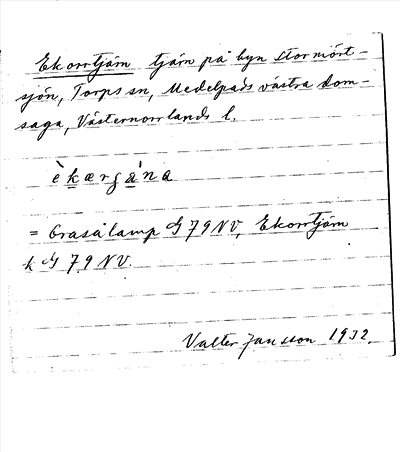 Ekorrtjärn tjärn på byn Stormört-
sjön, Torps sn, Medelpads västra dom-
saga, Västernorrlands l.
= Orasålamp 79 NV, Ekorrtjärn
k 79 NV.
Valter Jansson 1932.